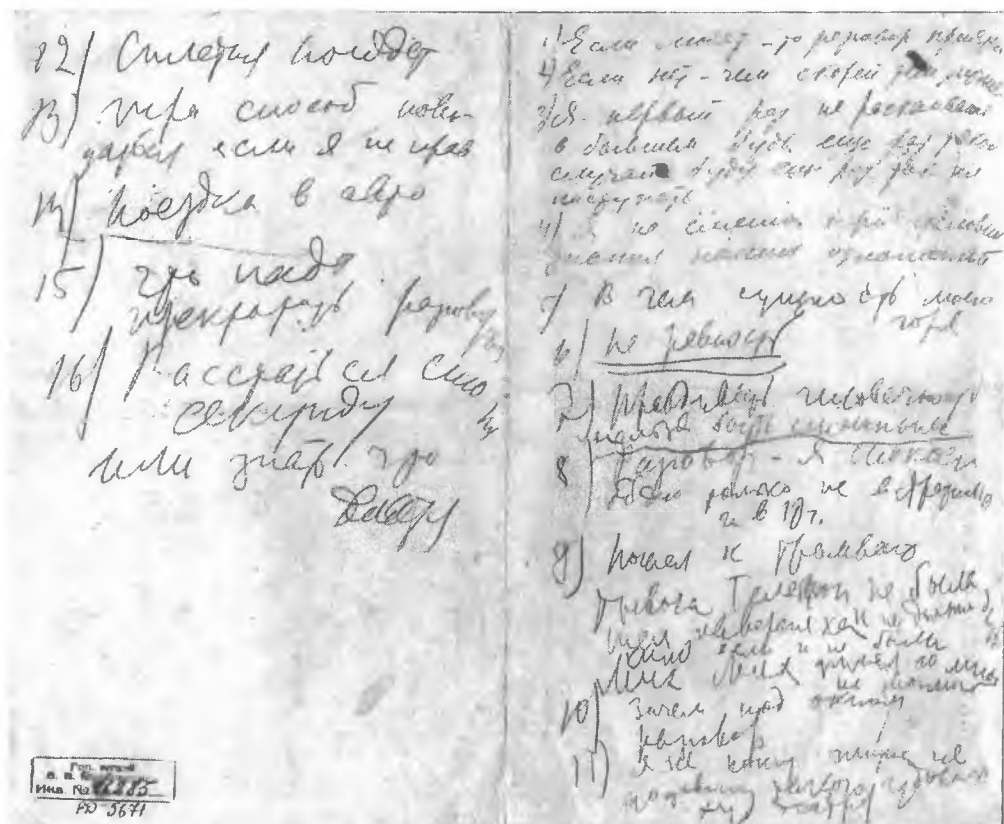 12) Сплетня пойдет
13) игра способ пови-
даться если я не прав
14) поездка в авто
15) что надо
прекратить разговоры
16) Расстаться сию
же
секунду
или знать что
делается
Инв. №
РД 5671
1) Если любят - то разговор приятен
2) Если нет - чем скорей тем лучше
3) Я первый раз не раскаиваюсь
в бывшем будь еще раз такой
случай буду еще раз так же
поступать
4) Я не смешон при условии
знания наших отношений
5) В чем сущность моего
горя
6) не ревность
7) Правдивость человечность
нельзя быть смешным
8 Разговор - я спокоен
Одно только не встретились
и в 10 ч.
9) Пошел к трамваю
тревога телефон не была
шел наверняка
кино если и не были
Мих Мих гулял со мной
не
10) Зачем под окном
разговор
11) я не кончу жизнь не
доставлю такого удовольст
худ театру